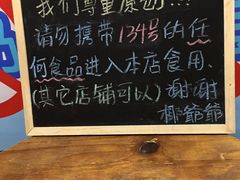 我们尊重原创!!!
请勿携带134号的任
何食品进入本店食用、
(其它店铺可以)谢谢
椰爷爷